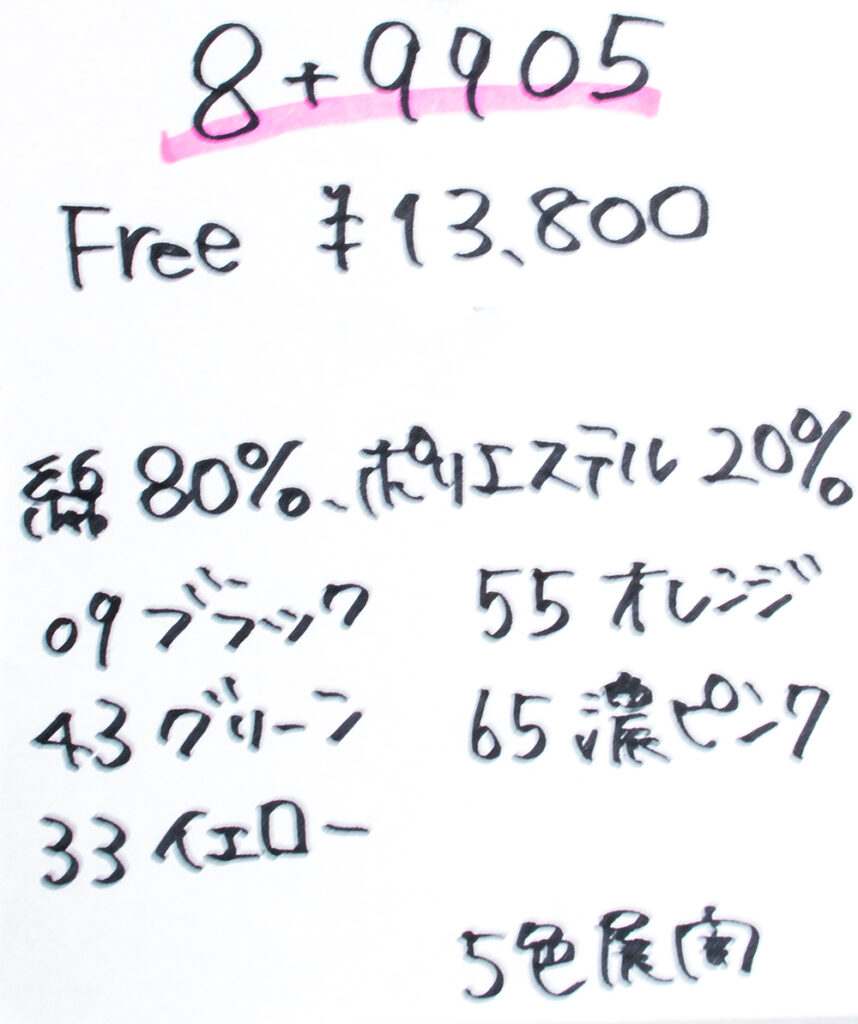 8+9905
Free ¥13,800
綿 80%、ポリエステル 20%
09 ブラック
55 オレンジ
43 グリーン
65 濃ピンク
33 イエロー
5色展開